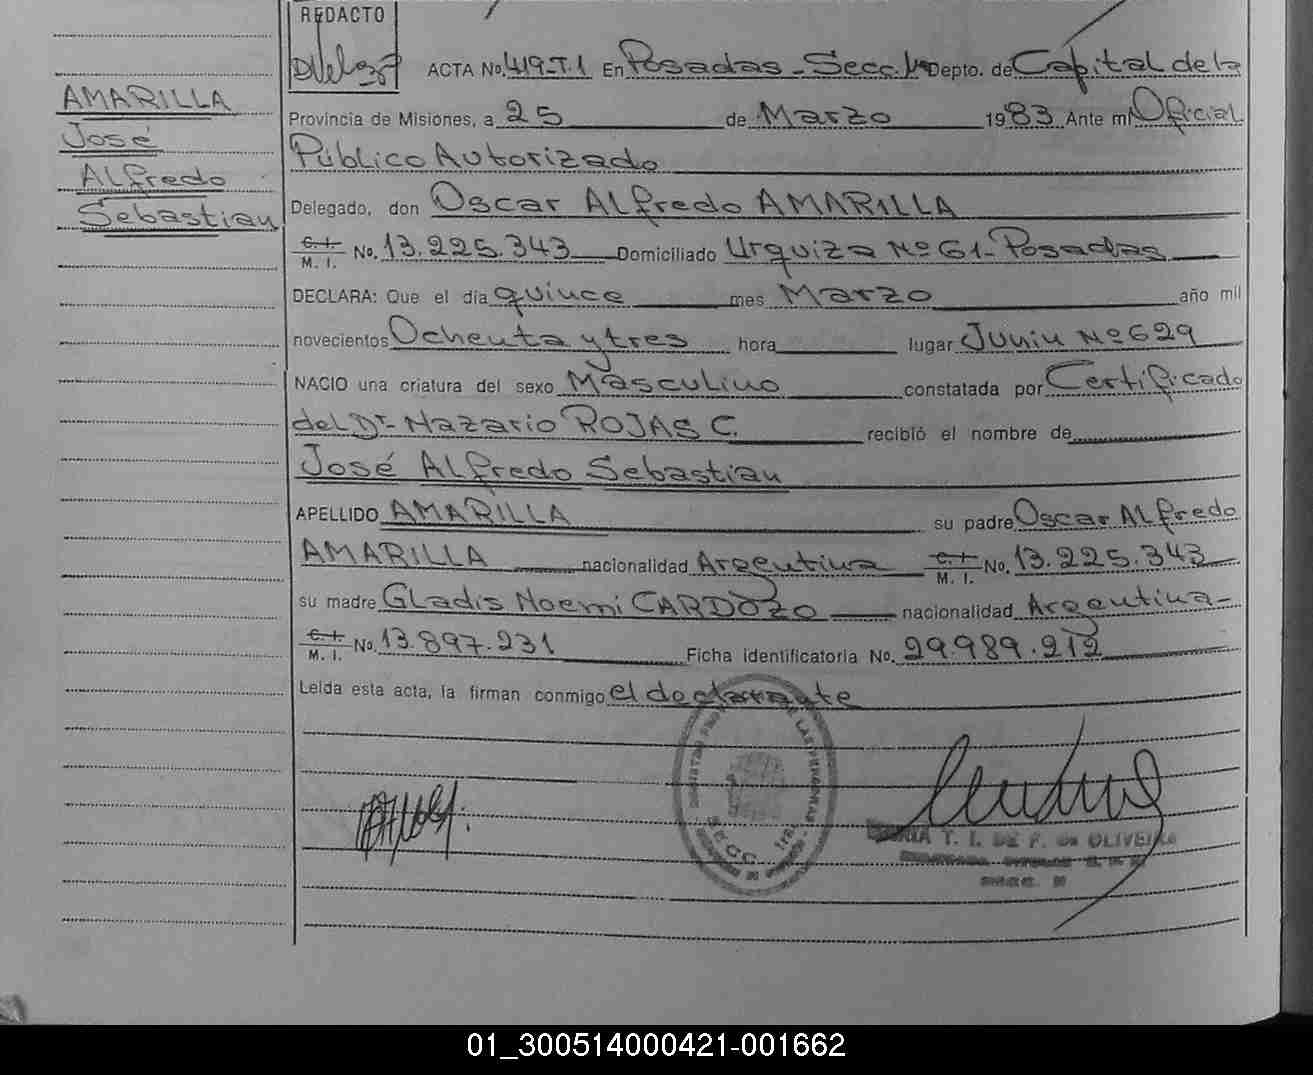 REDACTO
DVelazq
ACTA No. 419-T.1 En Posadas - Secc. 1ª Depto. de Capital de la
AMARILLA
José
Alfredo
Sebastian
Provincia de Misiones, a 25 de Marzo 1983 Ante mí Oficial
Público Autorizado
Delegado, don Oscar Alfredo AMARILLA
C. I. M. I. No. 13.225.343 Domiciliado Urquiza Nº 61 - Posadas
DECLARA: Que el día quince mes Marzo año mil
novecientos Ochenta y tres hora lugar Junin Nº 629
NACIO una criatura del sexo Masculino constatada por Certificado
del Dr. Nazario ROJAS C. recibió el nombre de
José Alfredo Sebastian
APELLIDO AMARILLA su padre Oscar Alfredo
AMARILLA nacionalidad Argentina C. I. M. I. No. 13.225.343
su madre Gladis Noemi CARDOZO nacionalidad Argentina-
C. I. M. I. No. 13.897.231 Ficha identificatoria No. 29.989.212
Leída esta acta, la firman conmigo el declarante
DE LAS PERSONAS
SECC. 1ra.
T. I. DE F. de OLIVEIRA
01_300514000421-001662